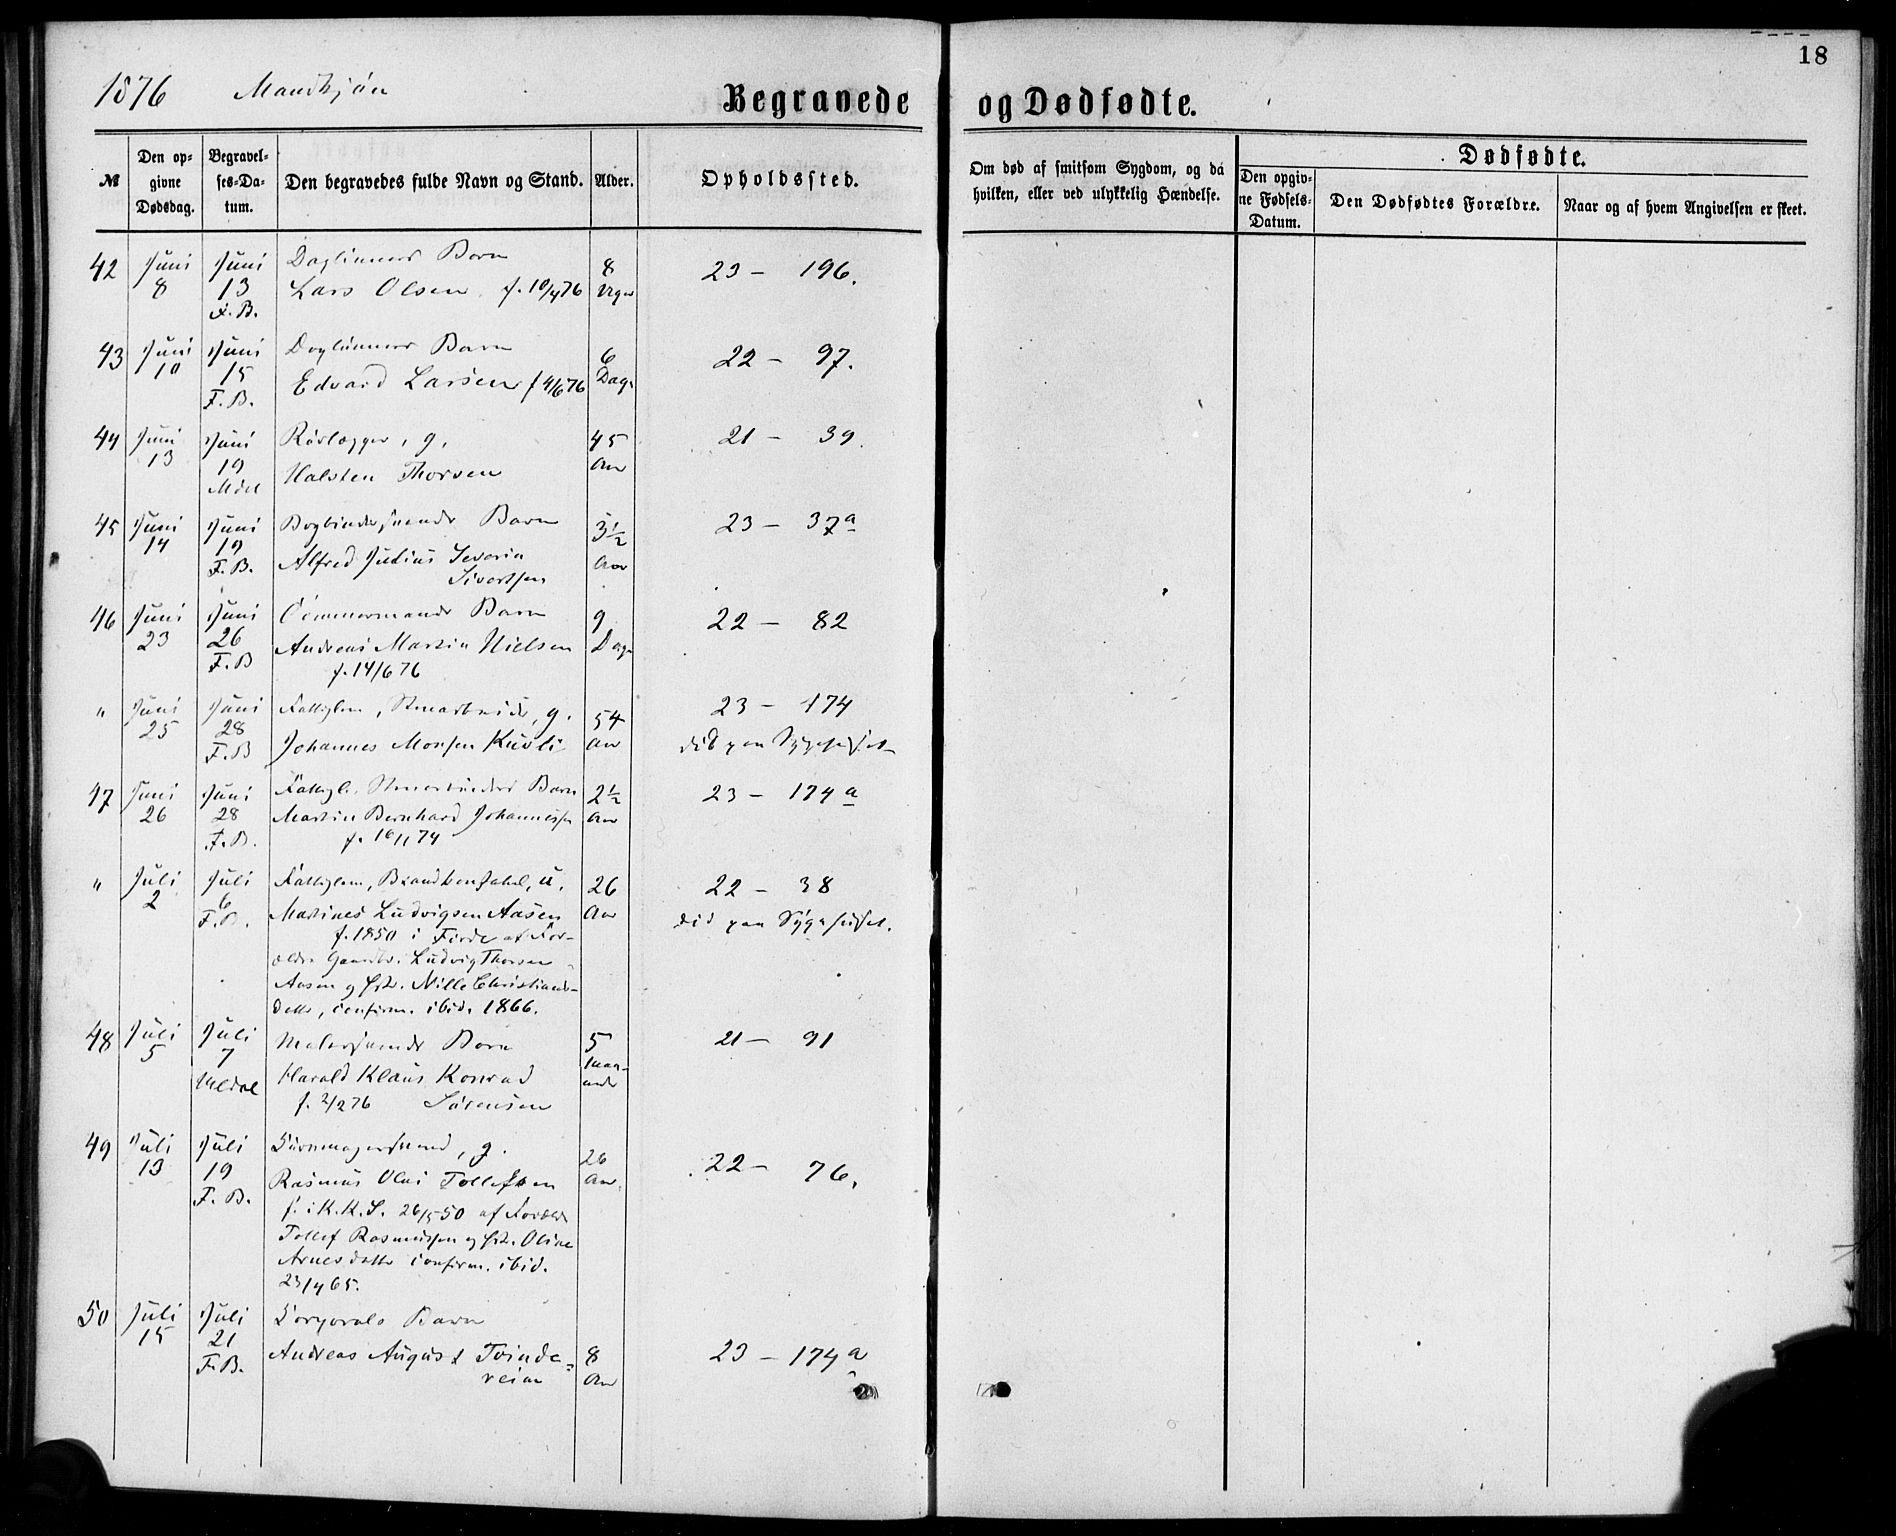 18
1876 Mandkjøn
Begravede og Dødfødte.
№
Den op-
givne
Dødsdag.
Begravel-
ses-Da-
tum.
Den begravedes fulde Navn og Stand.
Alder.
Opholdssted.
Om død af smitsom Sygdom, og da
hvilken, eller ved ulykkelig Hændelse.
Dødfødte.
Den opgiv-
ne Fødsels-
Datum.
Den Dødfødtes Forældre.
Naar og af hvem Angivelsen er skeet.
42 Juni 8 Juni 13 F. B. Barn 8 Uger 23 - 196.
Lars Olsen f. 10/4 76
43 Juni 10 Juni 15 F. B. Barn 6 Dage 22 - 97.
Edvard Larsen f 4/6 76
44 Juni 13 Juni 19 g. 45 Aar 21 - 39.
Halsten Thorsen
45 Juni 14 Juni 19 F. B. Bogbindersvends Barn 3½ Aar 23 - 37a
Alfred Julius Severin
Sivertsen
46 Juni 23 Juni 26 F. B Tømmermands Barn 9 Dage 22 - 82
Andreas Martin Nielsen
f. 14/6 76
" Juni 25 Juni 28 F. B Fattiglem, g. 54 Aar 23 - 174
Johannes Monsen død paa Sygehuset
47 Juni 26 Juni 28 F. B. Barn 2½ Aar 23 - 174 a
Martin Bernhard Johannessen
f. 16/1 74
" Juli 2 Juli 6 F. B. Fattiglem, u. 26 Aar 22 - 38
Martines Ludvigsen Aasen død paa Sygehuset.
f. 1850 i Førde af For-
ældre Gaardbr. Ludvig Thorsen
Aasen og Hst. Nille Christians-
datter, confirm. ibid. 1866.
48 Juli 5 Juli 7 Meldal Malersvends Barn 5 Maa-
neder 21 - 91
Harald Klaus Konrad
f. 2/2 76 Sørensen
49 Juli 13 Juli 19 F. B. g. 26 Aar. 22 - 76.
Rasmus Olai Tollefsen
f. i K. K. S. 26/5 50 af Forældre
Tollef Rasmussen og Hst. Oline
Arnesdatter confirm. ibid.
23/4 65.
50 Juli 15 Juli 21 F. B. Barn 8 Aar 23 - 174 a
Andreas August Tvinde-
reim